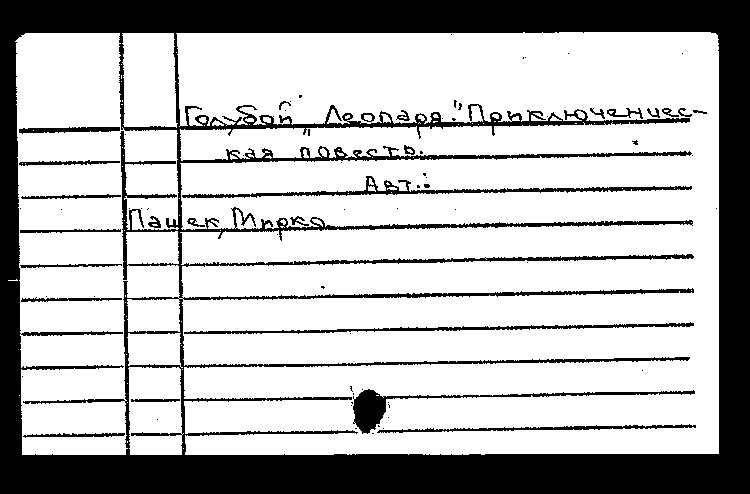 Голубой „Леопард." Приключенчес-
кая повесть.
Авт.:
Пашек, Мирко